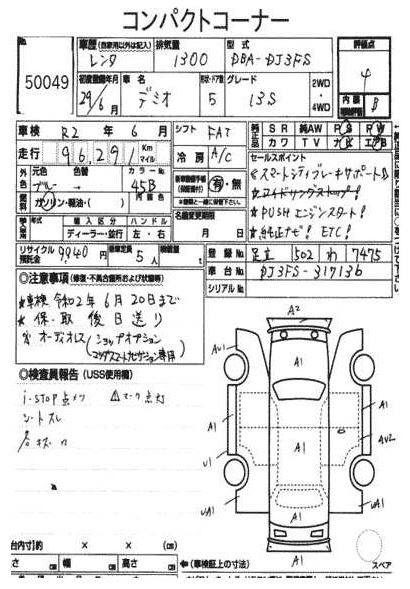 コンパクトコーナー
50049
車歴 (自家用以外は記入) レンタ
排気量 1300
型式 DBA-DJ3FS
評価点 4
内装 B
初度登録年月 29/6月
車名 デミオ
形状・ドア数 5
グレード 13S
2WD
・
4WD
車検 R2年 6月
シフト FAT
純正品 SR 純AW PS PW
カワ TV ナビ エアB
走行 96,291 Km マイル
冷房 A/C
セールスポイント
外色 元色 ブルー 色替 → カラーNo 45B
有・無
☆スマートシティブレーキサポート
★アイドリングストップ!
★PUSHエンジンスタート!
★純正ナビ! ETC!
燃料 ガソリン・軽油・( )
名義変更期限 月 日
輸入車 年式 輸入区分 ハンドル
ディーラー・並行 左・右
リサイクル預託金 9940円
乗車定員 5人
登録No 足立 502 わ 7475
車台No DJ3FS-317136
シリアルNo
◎注意事項 (修復・不具合箇所および状態等)
★車検 令和2年6月20日まで
★保・取 後日送り
※オーディオレス (ショップオプション
マツダスマートナビゲーション専用)
◎検査員報告 (USS使用欄)
i-STOP点メツ ⚠マーク点灯
シートスレ
A2
AU1
A1
A1
A1
A1
A1
A1
A1
A1
AU2
U1
UA1
A1
UA1
A1
台内寸)約 × × (cm)
さ cm 幅 cm 高さ cm
←(車検証上の寸法)
スペア